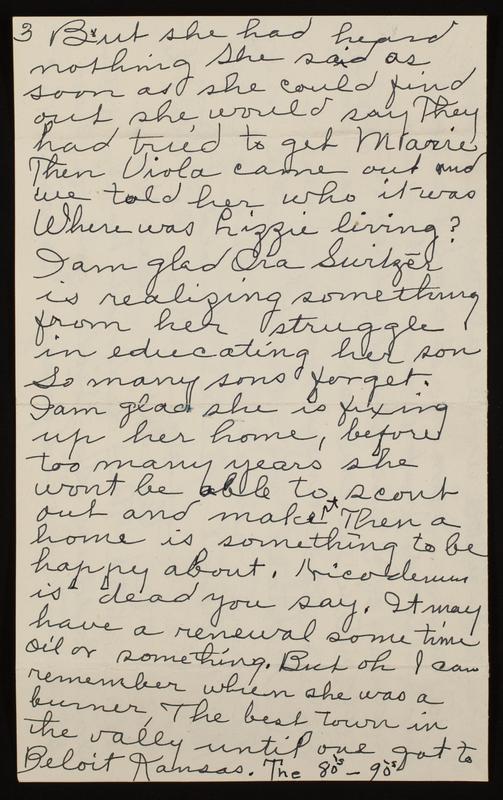 3 But she had heard
nothing She said as
soon as she could find
out she would say They
had tried to get Marrie
Then Viola came out and
we told her who it was
Where was Lizzie living?
I am glad Ora Switzer
is realizing something
from her struggle
in educating her son
So many sons forget.
I am glad she is fixing
up her home, before
too many years she
wont be able to scout
out and make it Then a
home is something to be
happy about. Nicodemus
is dead you say. It may
have a renewal some time
oil or something. But oh I can
remember when she was a
burner, The best town in
the vally until one got to
Beloit Kansas. The 80s - 90s